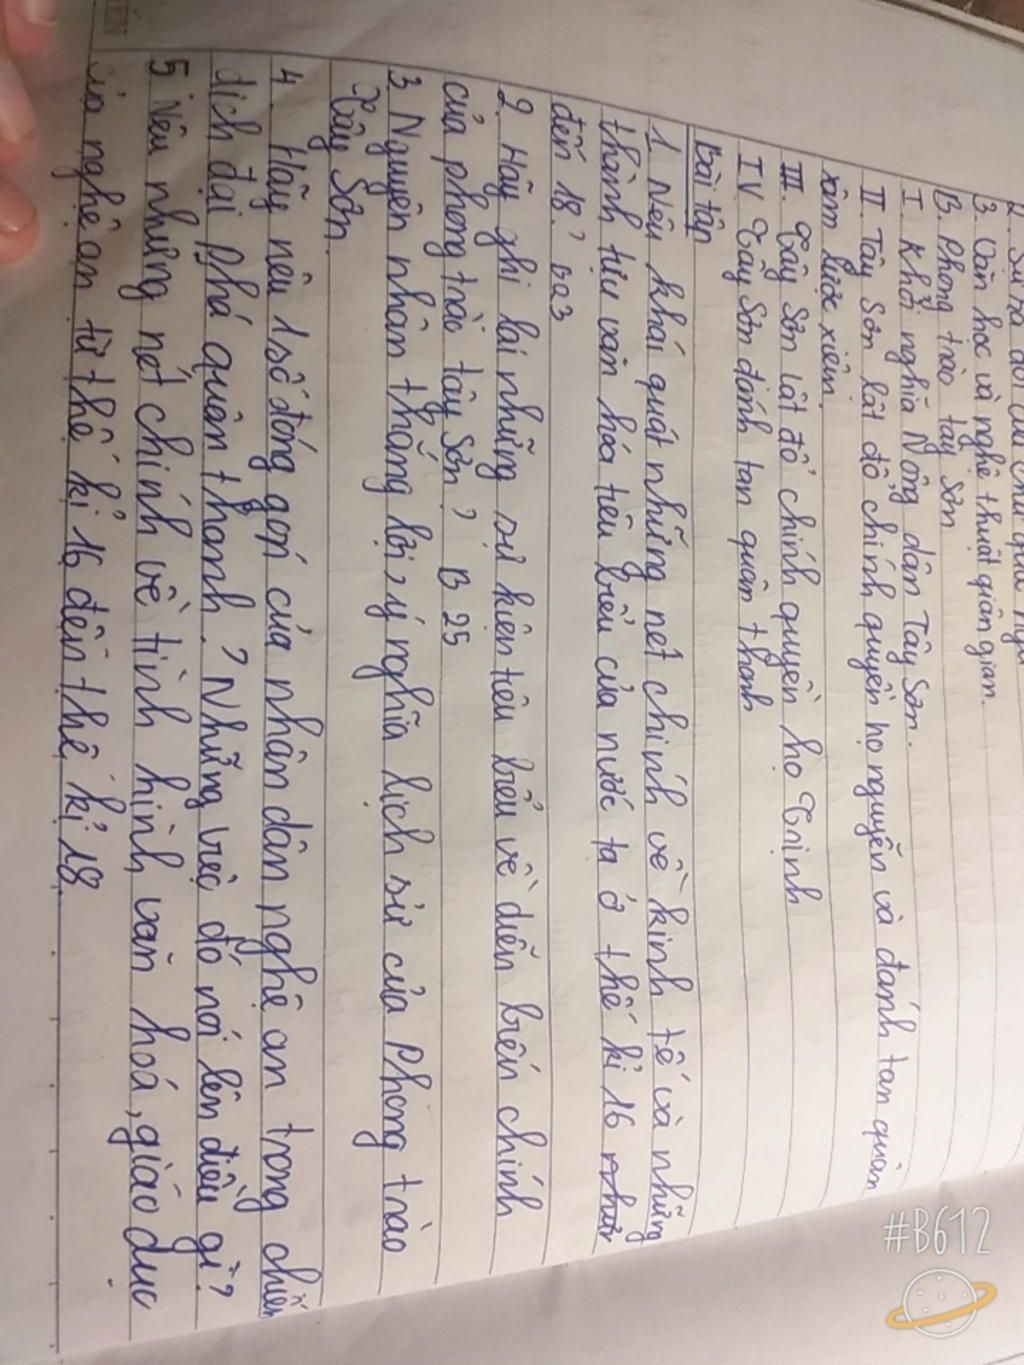 2. Sự ra đời của chữ quốc ngữ
3. Văn học và nghệ thuật giân gian.
B. Phong trào tây sơn
I. Khởi nghĩa Nông dân Tây Sơn.
II. Tây Sơn lật đổ chính quyền họ nguyễn và đánh tan quân
xâm lược xiêm.
III. Tây Sơn lật đổ chính quyền họ Trịnh
IV. Tây Sơn đánh tan quân thanh
Bài tập
1. Nêu khái quát những nét chính về kinh tế và những
thành tựu văn hóa tiêu biểu của nước ta ở thế kỉ 16
đến 18? Ba3
2. Hãy ghi lại những sự kiện tiêu biểu về diễn biến chính
của phong trào tây Sơn? B 25
3. Nguyên nhân thắng lợi, ý nghĩa lịch sử của phong trào
Tây Sơn.
4. Hãy nêu 1 số đóng gọp của nhân dân nghệ an trong chiến
dịch đại phá quân thanh? Những việc đó nói lên điều gì?
5 Nêu những nét chính về tình hình văn hoá, giáo dục
của nghệ an từ thế kỉ 16 đến thế kỉ 18
#B612